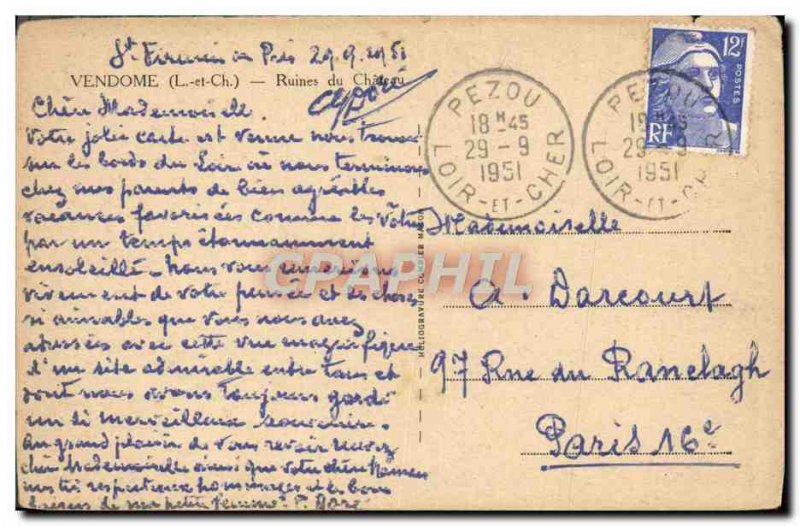 St Firmin des Prés 29.9.1951
VENDOME (L.-et-Ch.) — Ruines du Château
Chère Mademoiselle.
Votre jolie carte est venue nous trouver
sur les bords du Loir où nous terminons
chez mes parents de bien agréables
vacances favorisées comme les vôtres
par un temps étonnamment
ensoleillé. Nous vous remercions
vivement de votre pensée et des choses
si aimables que vous nous avez
adressées avec cette vue magnifique
d'un site admirable entre tous et
dont nous avons toujours gardé
un si merveilleux souvenir.
Au grand plaisir de vous revoir recevez
chère Mademoiselle ainsi que votre chère Maman
mes très respectueux hommages et les bons
baisers de ma petite femme. P. Doré
HELIOGRAVURE COMBIER MACON
CPAPHIL
PEZOU
18 H 45
29 - 9
1951
LOIR-ET-CHER
PEZOU
29 - 9
1951
LOIR-ET-CHER
12F
POSTES
RF
Mademoiselle
A. Darcourt
97 Rue du Ranelagh
Paris 16e